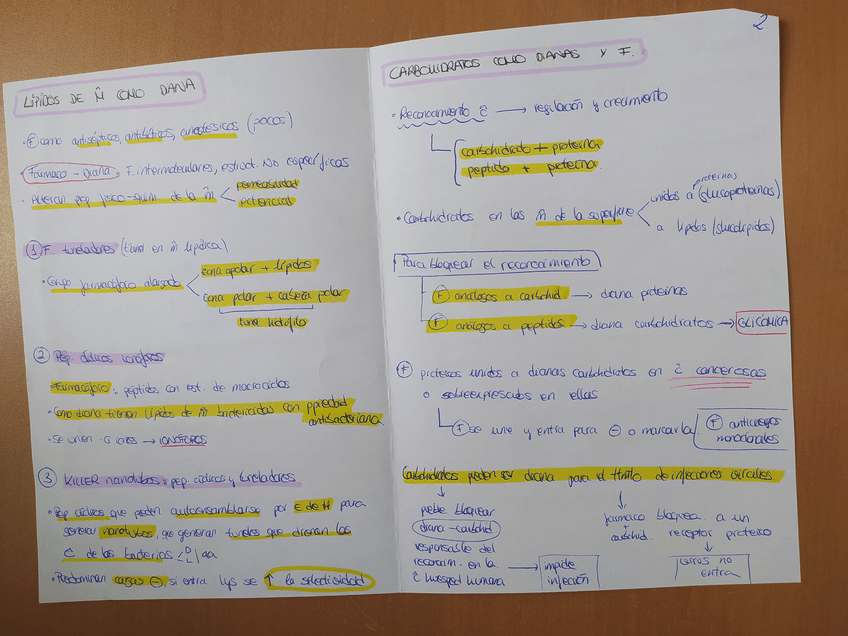 LÍPIDOS DE m̂ COMO DIANA
· Ⓕ como antisépticos, anestésicos (pocos)
Fármaco - Diana: F. intermoleculares, estruct. NO específicas
· Alteran pop físico-quím de la m̂
permeabilidad
potencial
① F tuneladores (túnel en m̂ lipídica)
· Grupo farmacóforo alargado
zona apolar + lípidos
zona polar + cabeza polar
túnel hidrófilo
② Pep. cíclicos ionóforos
Farmacóforo: péptidos con est. de macrociclos
· Como diana tienen lípidos de m̂ bactericidas con ppiedad
antibacteriana.
· Se unen a iones → IONÓFOROS
③ KILLER nanotubos: pep. cíclicos y tuneladores
· Pep cíclicos que pueden autoensamblarse por E de H para
generar nanotubos, que generan túneles que drenan las
ĉ de las bacterias < D L aa
· Predominan cargas ⊖, si entra Lys se ↑ la selectividad
2
CARBOHIDRATOS COMO DIANAS Y F.
· Reconocimiento ĉ → regulación y crecimiento
carbohidrato + proteína
péptido + proteína
· Carbohidratos en las m̂ de la superficie
unidos a proteínas (glucoproteínas)
a lípidos (glucolípidos)
· Para bloquear el reconocimiento
Ⓕ análogos a carbohid. → diana proteínas
Ⓕ análogos a péptidos → diana carbohidratos → GLICÓMICA
Ⓕ proteicos unidos a dianas carbohidratos en ĉ cancerosas
o sobreexpresados en ellas
Ⓕ se une y entra para ⊖ o marcarla
Ⓕ anticuerpos
monoclonales
Carbohidratos pueden ser diana para el tto de infecciones virales
puede bloquear
diana - carbohid
responsable del
reconocim. en la
ĉ huésped humana
→ impide
infección
fármaco bloquea a un
carbohid. → receptor proteico
virus no
entra